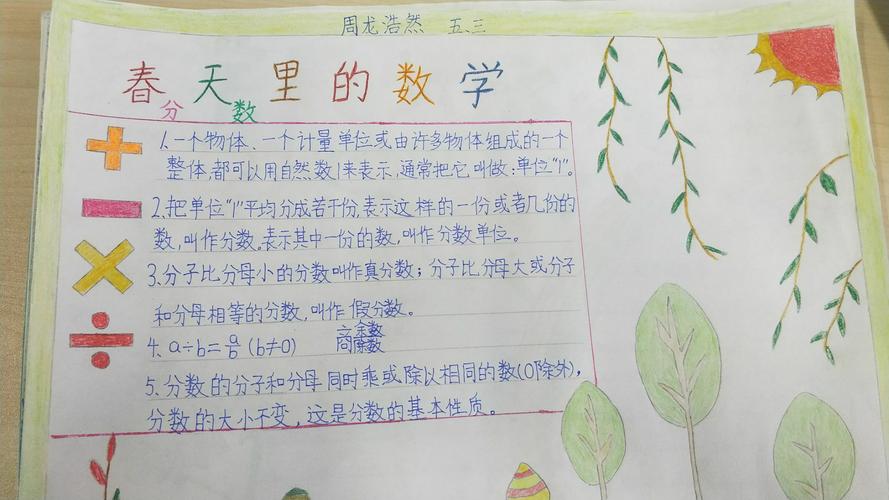 周龙浩然 五.三
春天里的数学
分 数
1.一个物体、一个计量单位或由许多物体组成的一个
整体,都可以用自然数1来表示,通常把它叫做:单位“1”。
2.把单位“1”平均分成若干份,表示这样的一份或者几份的
数,叫作分数。表示其中一份的数,叫作分数单位。
3.分子比分母小的分数叫作真分数；分子比分母大或分子
和分母相等的分数,叫作 假分数。
4. a÷b=a/b (b≠0)
5.分数的分子和分母同时乘或除以相同的数(0除外),
分数的大小不变，这是分数的基本性质。